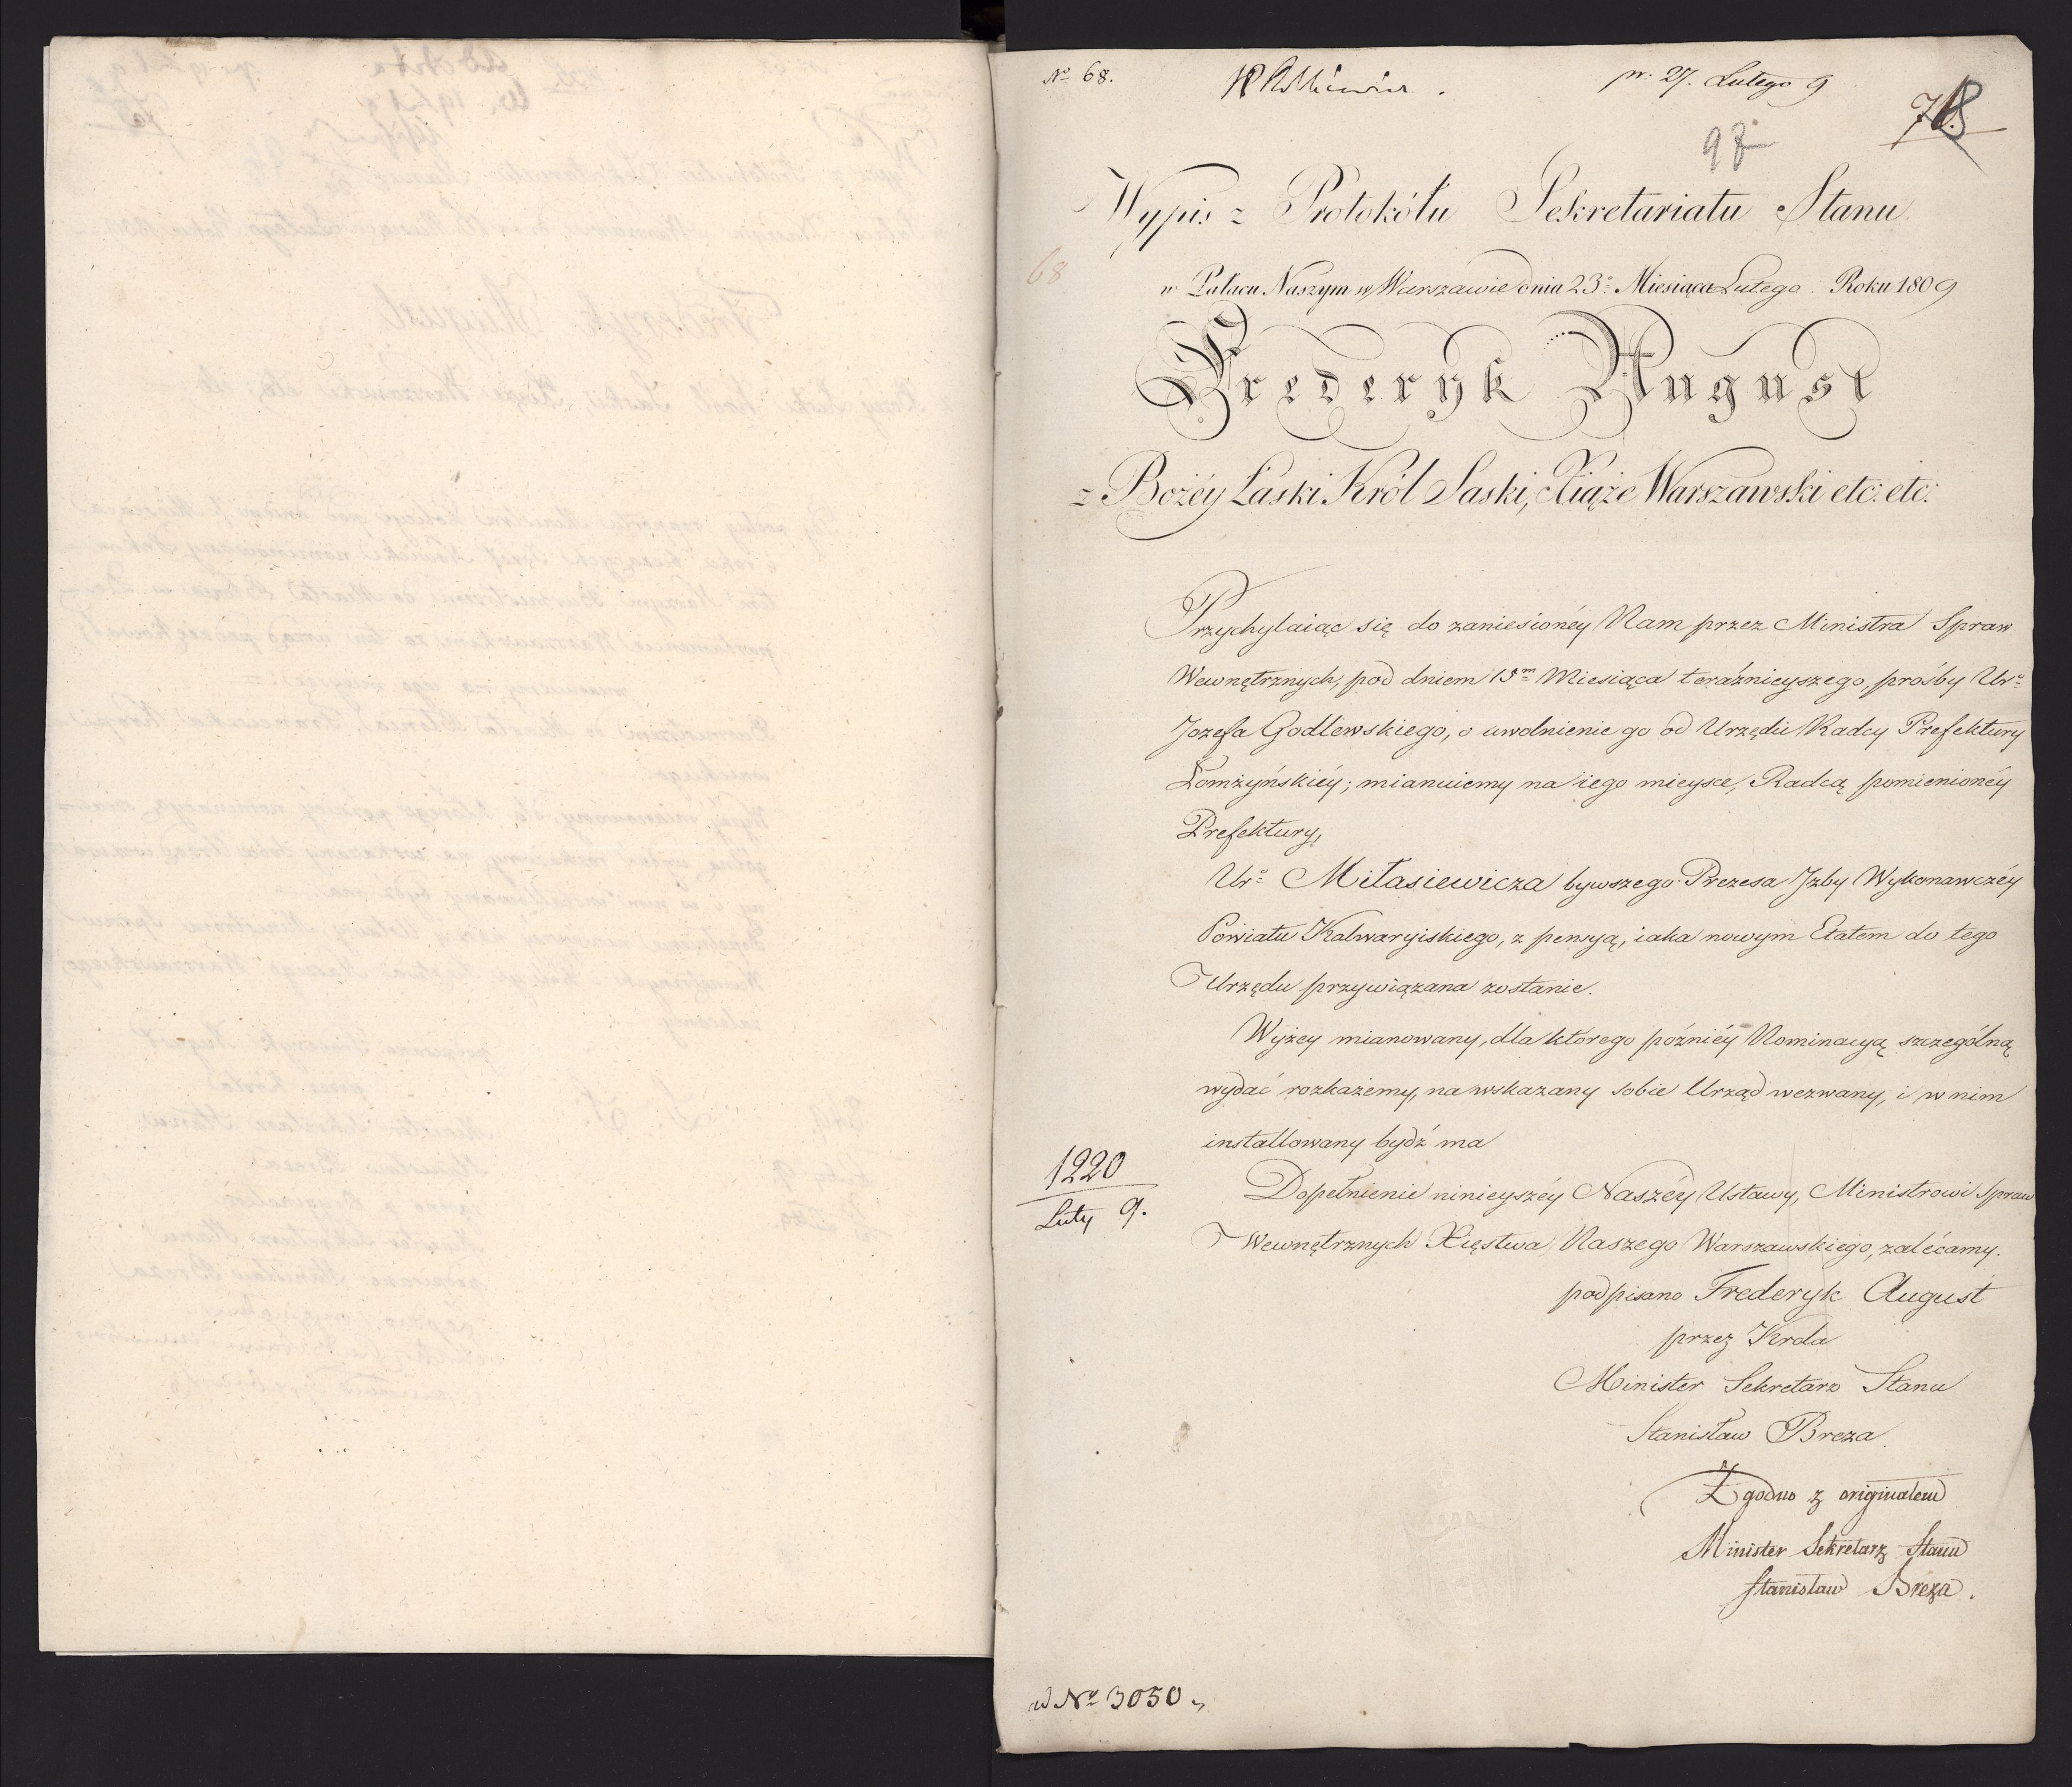 No 68.
pr: 27. Lutego 9
78
97
Wypis z Protokółu Sekretariatu Stanu
68
w Pałacu Naszym w Warszawie dnia 23o Miesiąca Lutego. Roku 1809
Frederyk August
z Bożéy Łaski Król Saski, Xiąże Warszawski etc: etc:
Przychylaiąc się do zaniesionéy Nam przez Ministra Spraw
Wewnętrznych, pod dniem 15m Miesiąca teraźnieyszego, prośby Uro
Jozefa Godlewskiego, o uwolnienie go od Urzędu Radcy Prefektury
Łomżyńskiéy; mianuiemy na iego mieysce, Radcą pomienionéy
Prefektury,
Uro Miłasiewicza bywszego Prezesa Jzby Wykonawczéy
Powiatu Kalwaryiskiego, z pensyą, iaka nowym Etatem do tego
Urzędu przywiązana zostanie.
Wyżey mianowany, dla którego późniéy Nominacyą szczególną
wydać rozkażemy, na wskazany sobie Urząd wezwany, i w nim
installowany bydź ma
1220
Luty 9.
Dopełnienie ninieyszéy Naszéy Ustawy, Ministrowi Spraw
Wewnętrznych Xięstwa Naszego Warszawskiego, zalécamy.
podpisano Frederyk August
przez Krola
Minister Sekretarz Stanu
Stanisław Breza
Zgodno z originałem
Minister Sekretarz Stanu
Stanisław Breza.
ad No 3050